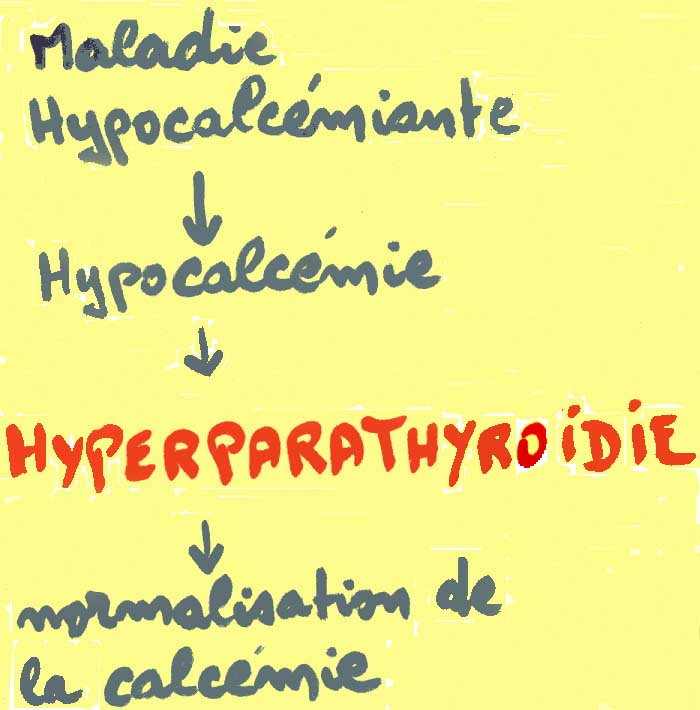 Maladie
Hypocalcémiante
↓
Hypocalcémie
↓
HYPERPARATHYROïDiE
↓
normalisation de
la calcémie